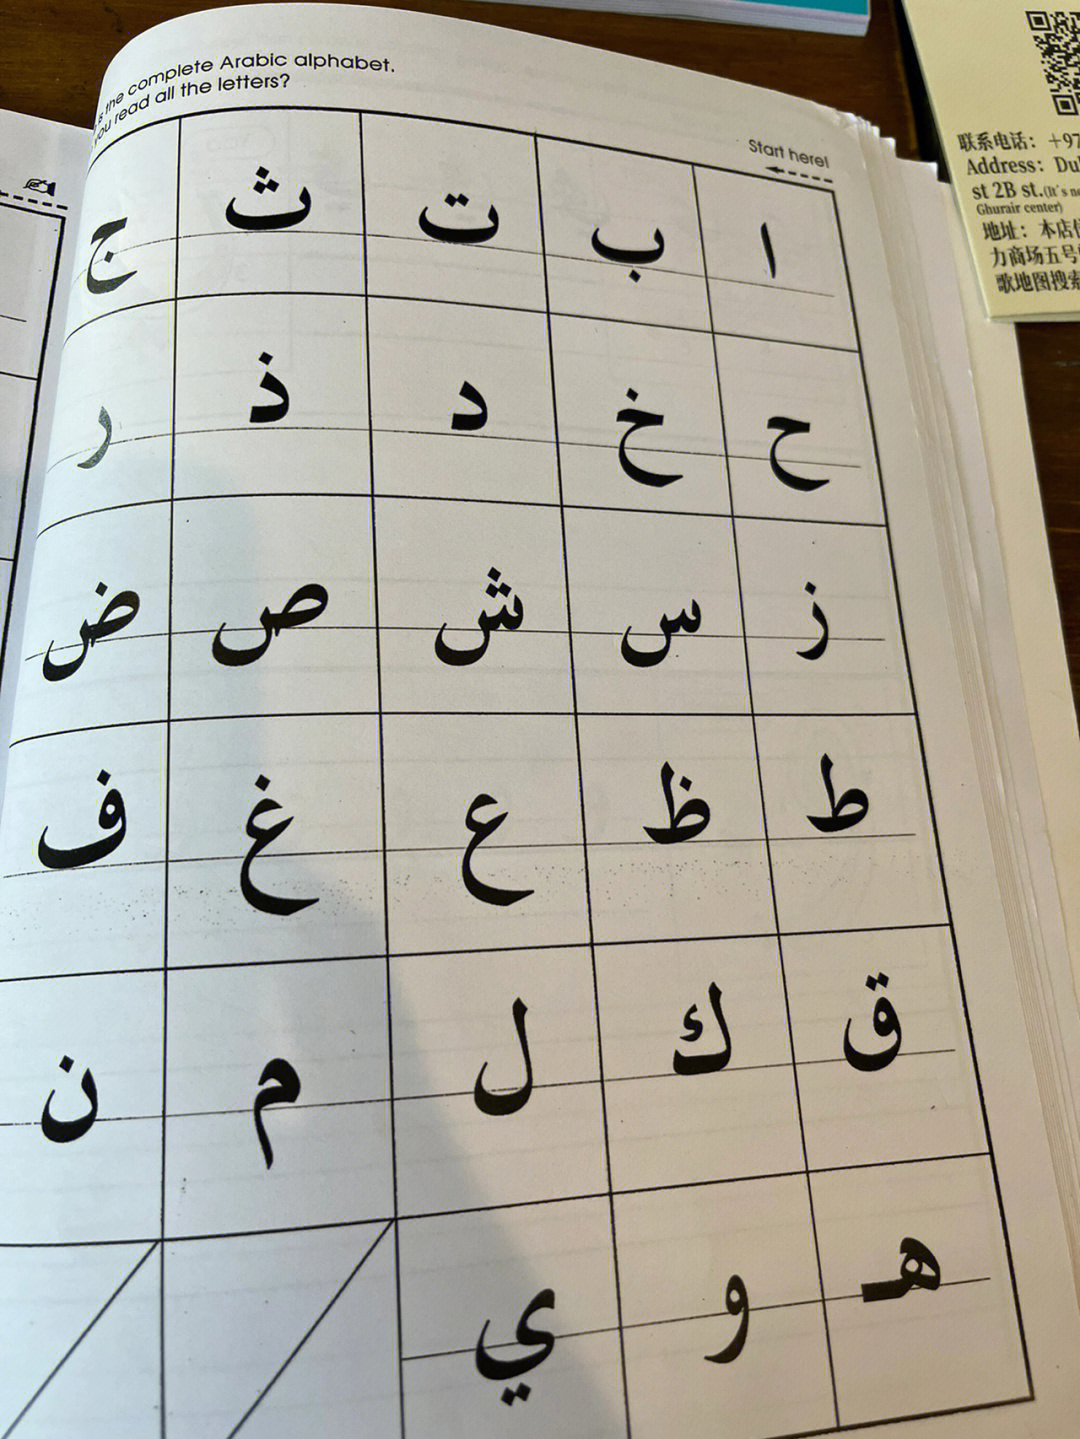 is the complete Arabic alphabet.
you read all the letters?
Start here!
ا ب ت ث ج
ح خ د ذ ر
ز س ش ص ض
ط ظ ع غ ف
ق ك ل م ن
هـ و ي
联系电话： +97
Address: Du
st 2B st.(It's
Ghurair center)
地址： 本店
力商场五号
歌地图搜索